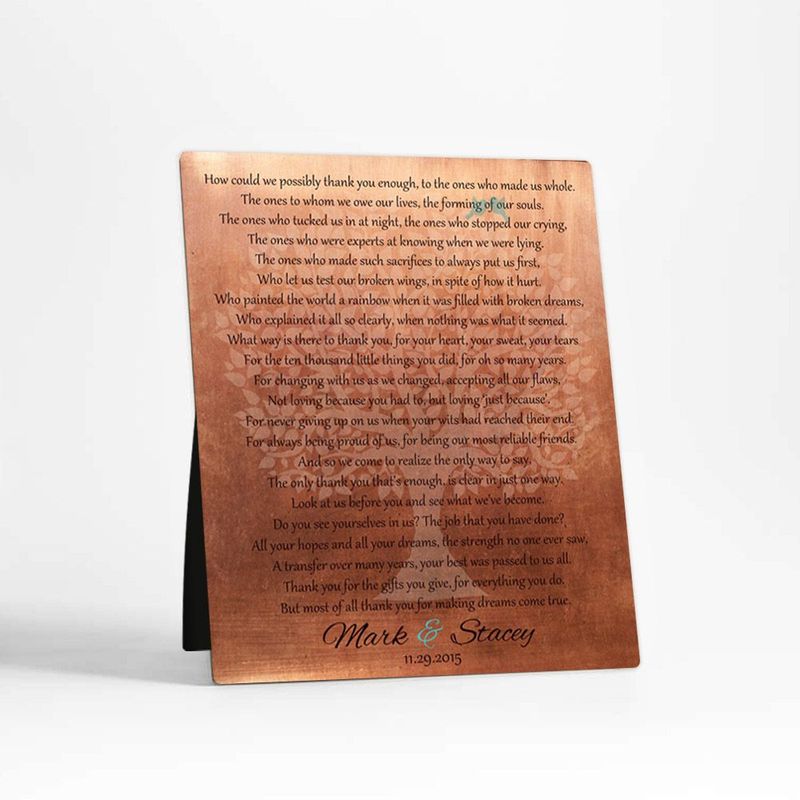 How could we possibly thank you enough, to the ones who made us whole.
The ones to whom we owe our lives, the forming of our souls.
The ones who tucked us in at night, the ones who stopped our crying,
The ones who were experts at knowing when we were lying.
The ones who made such sacrifices to always put us first,
Who let us test our broken wings, in spite of how it hurt.
Who painted the world a rainbow when it was filled with broken dreams,
Who explained it all so clearly, when nothing was what it seemed.
What way is there to thank you, for your heart, your sweat, your tears
For the ten thousand little things you did, for oh so many years.
For changing with us as we changed, accepting all our flaws,
Not loving because you had to, but loving 'just because'.
For never giving up on us when your wits had reached their end.
For always being proud of us, for being our most reliable friends.
And so we come to realize the only way to say,
The only thank you that's enough, is clear in just one way.
Look at us before you and see what we've become.
Do you see yourselves in us? The job that you have done?
All your hopes and all your dreams, the strength no one ever saw,
A transfer over many years, your best was passed to us all.
Thank you for the gifts you give, for everything you do.
But most of all thank you for making dreams come true.
Mark & Stacey
11.29.2015